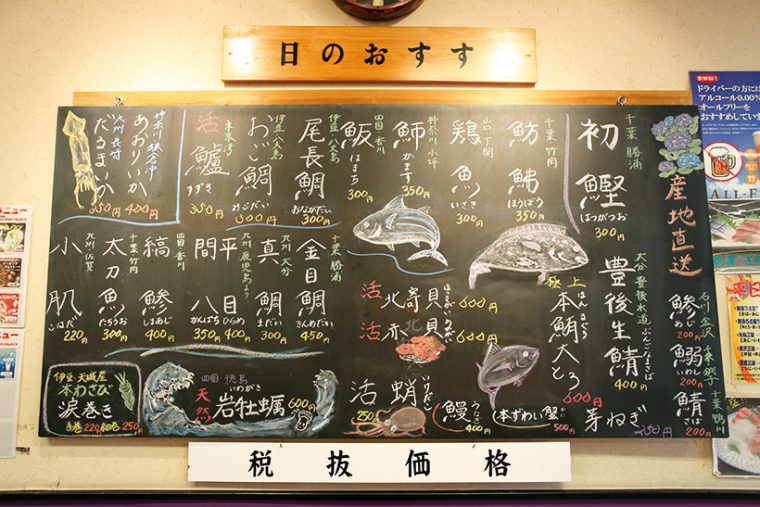 日のおすすめ
産地直送
千葉 勝浦
初鰹
はつがつお
300円
千葉 竹岡
魴鮄
ほうぼう
350円
山口 下関
鶏魚
いさき
300円
神奈川 小坪
かます
350円
四国 香川
はまち
300円
伊豆 八丈島
尾長鯛
おながだい
300円
伊豆 八丈島
おご鯛
おごだい
300円
東京湾
活鱸
すずき
350円
神奈川 佐島沖
あおりいか
400円
九州 長崎
だるまいか
350円
石川 金沢
鯵
あじ
200円
千葉 銚子
鰯
いわし
200円
千葉 鴨川
鯖
さば
200円
大分 豊後水道
豊後生鯖
ぶんごなまさば
400円
極上
本鮪大とろ
ほんまぐろ
600円
活 北寄貝
ほっきがい
600円
活 赤貝
あかがい
600円
千葉 勝浦
金目鯛
きんめだい
450円
九州 大分
真鯛
まだい
300円
九州 鹿児島より
平目
ひらめ
400円
間八
かんぱち
350円
四国 香川
縞鯵
しまあじ
400円
千葉 竹岡
太刀魚
たちうお
300円
九州 佐賀
小肌
こはだ
220円
伊豆・天城産
本わさび
涙巻き
手巻 220円 細巻 250円
四国 徳島
天然 岩牡蠣
いわがき
600円
活蛸
250円
鰻
うなぎ
400円
本ずわい蟹
500円
芽ねぎ
250円
税抜価格
ドライバーの方には
アルコール0.00%
オールフリーを
おすすめしています
ALL-F
メニュー
メニュー